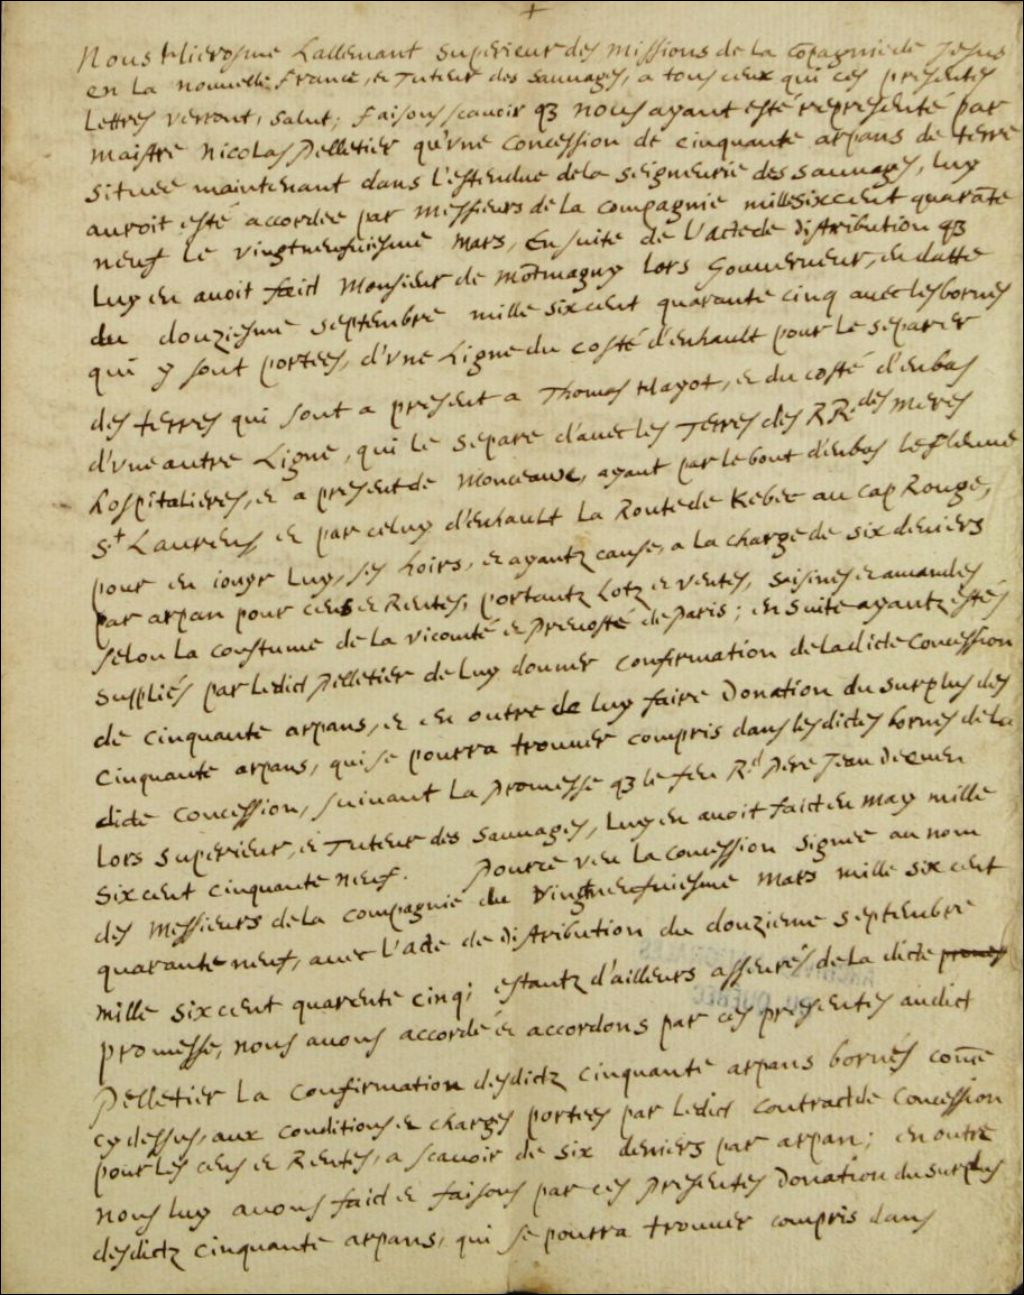 +
Nous Hierosme Lallemant superieur des missions de la Cõpagnie de Jesus
en la nouuelle france, et Tuteur des sauuages, a tous ceux qui ces presentes
Lettres verront, salut; faisons scauoir q3 nous ayant esté representé par
maistre Nicolas Pelletier qu'vne concession de cinquante arpans de terre
située maintenant dans l'estendue de la seigneurie des sauuages, luy
auroit esté accordée par messieurs de la compagnie mille six cent quarãte
neuf le vingtneufuiesme mars, En suite de l'acte de distribution q3
luy en auoit faict Monsieur de Mõtmagny lors Gouuerneur, en datte
du douziesme septembre mille six cent quarante cinq auec les bornes
qui y sont portées, d'vne ligne du costé d'enhault pour le separer
des terres qui sont a present a Thomas Hayot, et du costé d'enbas
d'vne autre Ligne, qui le separe d'auec les Terres des RR. des meres
hospitalieres, et a present de Monceaux, ayant par le bout d'enbas le fleuue
St Laurens et par celuy d'enhault la Route de Kebec au cap Rouge,
pour en iouyr luy, ses hoirs, et ayantz cause, a la charge de six deniers
par arpan pour cens et Rentes, portantz lotz et ventes, saisines et amandes
selon la coustume de la vicomté et preuosté de Paris; en suite ayantz estés
suppliés par ledict Pelletier de luy donner confirmation de la dicte concession
de cinquante arpans, et en outre de luy faire Donation du surplus des
cinquante arpans, qui se pourra trouuer compris dans les dictes bornes de la
dicte concession, suiuant la promesse q3 le feu Rd père Jean Dequen
lors superieur, et Tuteur des sauuages, luy en auoit faict en may mille
six cent cinquante neuf. Pource veu la concession signée au nom
des Messieurs de la compagnie du vingtneufuiesme Mars mille six cent
quarante neuf, auec l'acte de distribution du douzieme septembre
mille six cent quarente cinq; estantz d'ailleurs asseurés de la dicte promes
promesse, nous auons accordé et accordons par ces presentes audict
Pelletier la confirmation desdictz cinquante arpans bornés cõme
cy dessus, aux conditions et charges portées par ledict contract de concession
pour les cens et Rentes, a scauoir de six deniers par arpan; en outre
nous luy auons faict et faisons par ces presentes Donation du surplus
desdictz cinquante arpans, qui se pourra trouuer compris dans